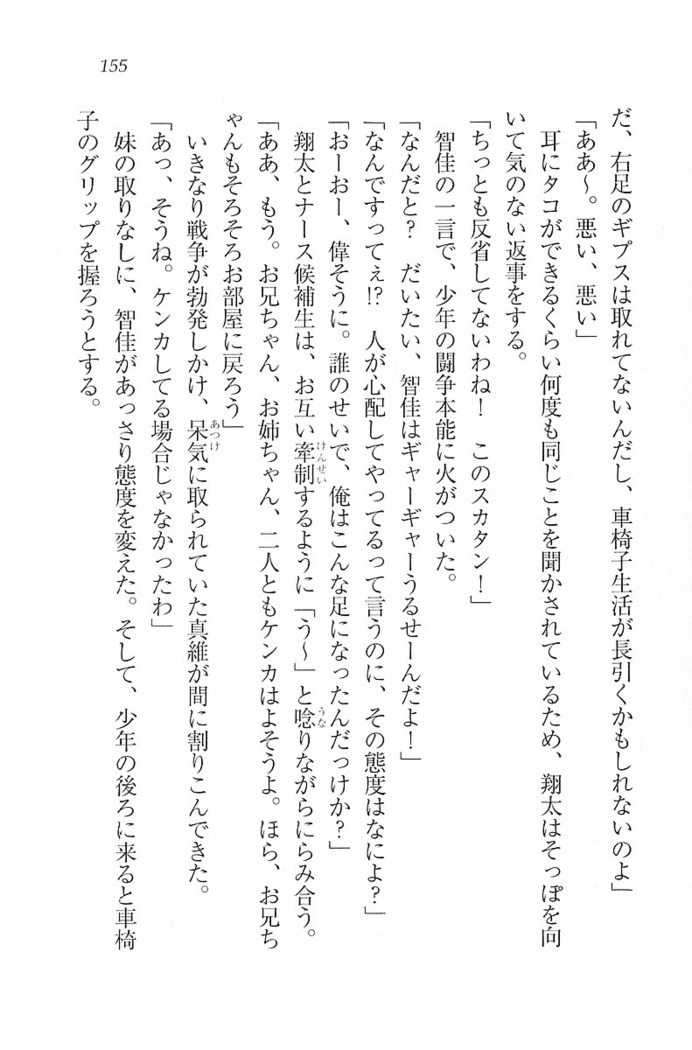 155
だ、右足のギプスは取れてないんだし、車椅子生活が長引くかもしれないのよ」
「ああ〜。悪い、悪い」
耳にタコができるくらい何度も同じことを聞かされているため、翔太はそっぽを向
いて気のない返事をする。
「ちっとも反省してないわね！　このスカタン！」
智佳の一言で、少年の闘争本能に火がついた。
「なんだと？　だいたい、智佳はギャーギャーうるせーんだよ！」
「なんですってぇ!?　人が心配してやってるって言うのに、その態度はなによ？」
「おーおー、偉そうに。誰のせいで、俺はこんな足になったんだっけか？」
翔太とナース候補生は、お互い牽制するように「う〜」と唸りながらにらみ合う。
「ああ、もう。お兄ちゃん、お姉ちゃん、二人ともケンカはよそうよ。ほら、お兄ち
ゃんもそろそろお部屋に戻ろう」
いきなり戦争が勃発しかけ、呆気に取られていた真維が間に割りこんできた。
「あっ、そうね。ケンカしてる場合じゃなかったわ」
妹の取りなしに、智佳があっさり態度を変えた。そして、少年の後ろに来ると車椅
子のグリップを握ろうとする。